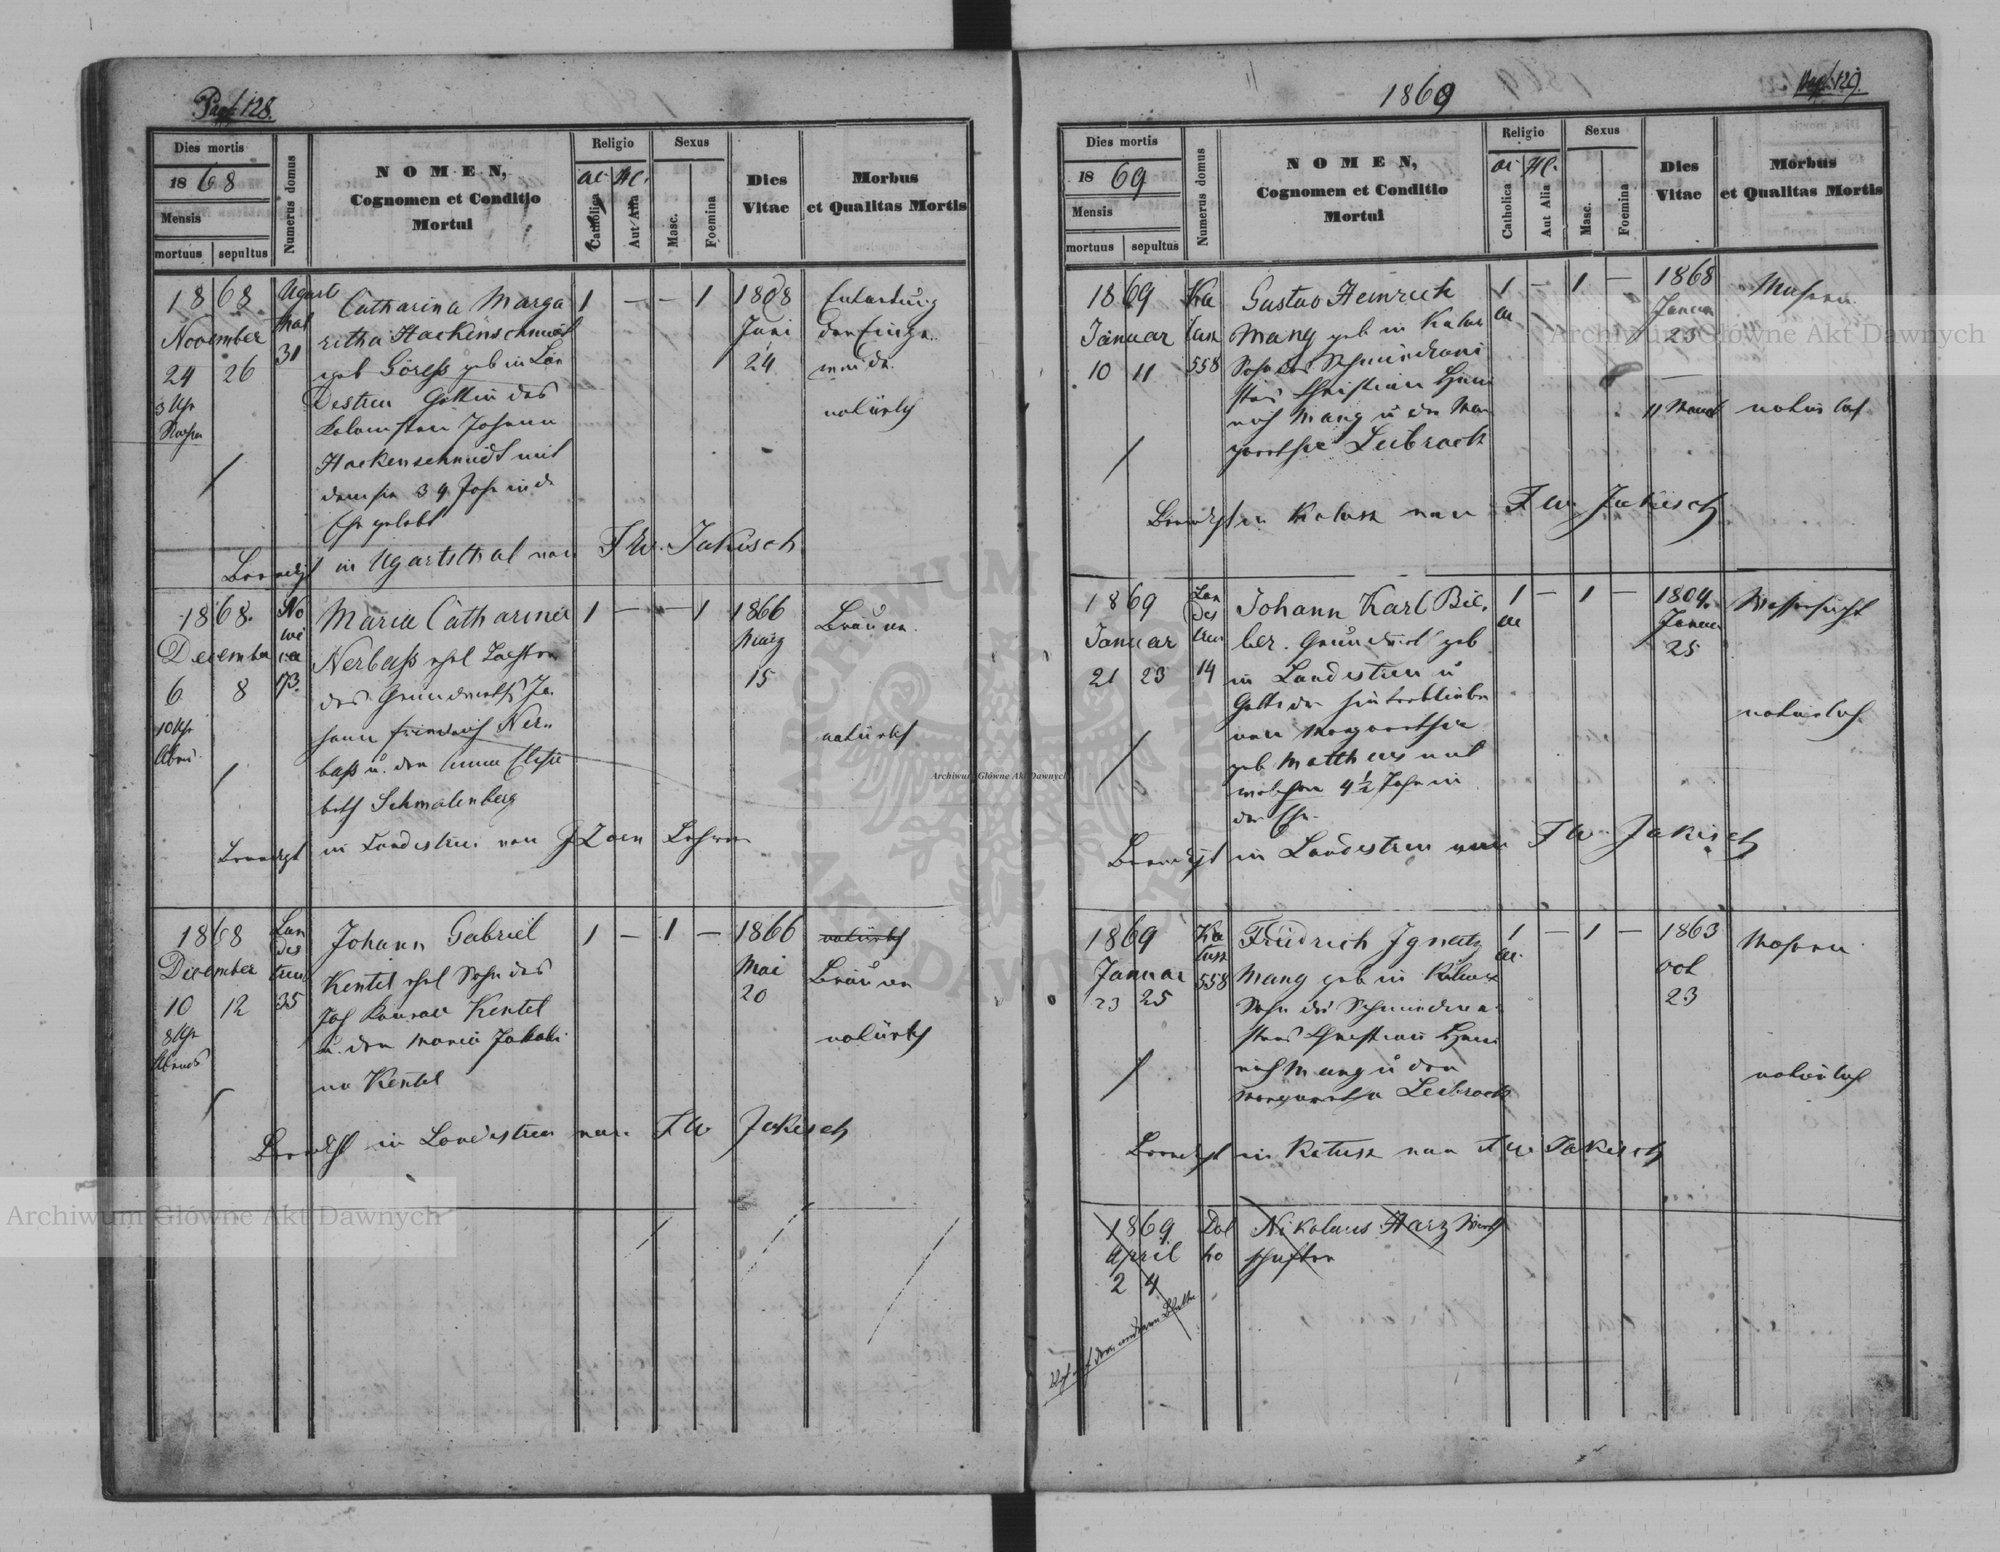 Pag. 128.
Dies mortis
1868
Mensis
mortuus sepultus
Numerus domus
NOMEN,
Cognomen et Conditio
Mortui
Religio
AC. HC.
Catholica
Aut Alia
Sexus
Masc.
Foemina
Dies
Vitae
Morbus
et Qualitas Mortis
1868
November
24 26
3 Uhr
Ugarts
thal
31
Catharina Marga
retha Hackenschmidt
geb Göres geb in Lan
destreu Gattin des
Kolonisten Johann
Hackenschmidt mit
dem sie 34 Jahr in d
Ehe gelebt
1 — — 1
1808
Juni
24
Entartung
der Einge
weide
natürlich
Beerdigt in Ugartsthal von F W. Jakisch
1868.
December
6 8
10 Uhr
No
wi
ca
73.
Maria Catharina
Nerbaß ehel Tochter
des Grundwirths Jo
hann Friedrich Ner
baß u. der Anna Elisa
beth Schmalenberg
1 — — 1
1866
März
15
Bräune
natürlich
Beerdigt in Landestreu von Lehrer
1868
December
10 12
8 Uhr
Abends
Lan
des
treu
35
Johann Gabriel
Kentel ehel Sohn des
Joh Konrad Kentel
u. der Maria
Kentel
1 — 1 —
1866
Mai
20
natürlich
Bräune
natürlich
Beerdigt in Landestreu von F W Jakisch
1869
Pag. 129.
Dies mortis
1869
Mensis
mortuus sepultus
Numerus domus
NOMEN,
Cognomen et Conditio
Mortui
Religio
AC HC.
Catholica
Aut Alia
Sexus
Masc.
Foemina
Dies
Vitae
Morbus
et Qualitas Mortis
1869
Januar
10 11
Ka
lusz
558
Gustav Heinrich
Mang geb in Kalusz
Sohn des Schmidmei
sters Christian Hein
rich Mang u der Mar
garethe Leibrock
1 — 1 —
AC
1868
Januar
23
11 Monat
Masern
natürlich
Beerdigt in Kalusz von F W. Jakisch
1869
Januar
21 23
Lan
des
treu
14
Johann Karl Bie
ber. Grundwirt geb
in Landestreu u
Gatte der hinterbliebe
nen Margarethe
geb Mattheis mit
welcher 4½ Jahr in
der Ehe.
1 — 1 —
AC
1804.
Januar
25
Wassersucht
natürlich
Beerdigt in Landestreu von F W. Jakisch
1869
Januar
23 25
Ka
lusz
558
Friedrich Ignatz
Mang geb in Kalusz
Sohn des Schmidmei
sters Christian Hein
rich Mang u der
Margaretha Leibrock
1 — 1 —
AC.
1863
Oct
23
Masern
natürlich
Beerdigt in Kalusz von F W. Jakisch
1869
April
2 4
Dol
ho
Nikolaus Harz Wirth
schafter
auf dem anderen Blatte
Archiwum Główne Akt Dawnych
Archiwum Główne Akt Dawnych
Archiwum Główne Akt Dawnych
ARCHIWUM GŁÓWNE AKT DAWNYCH